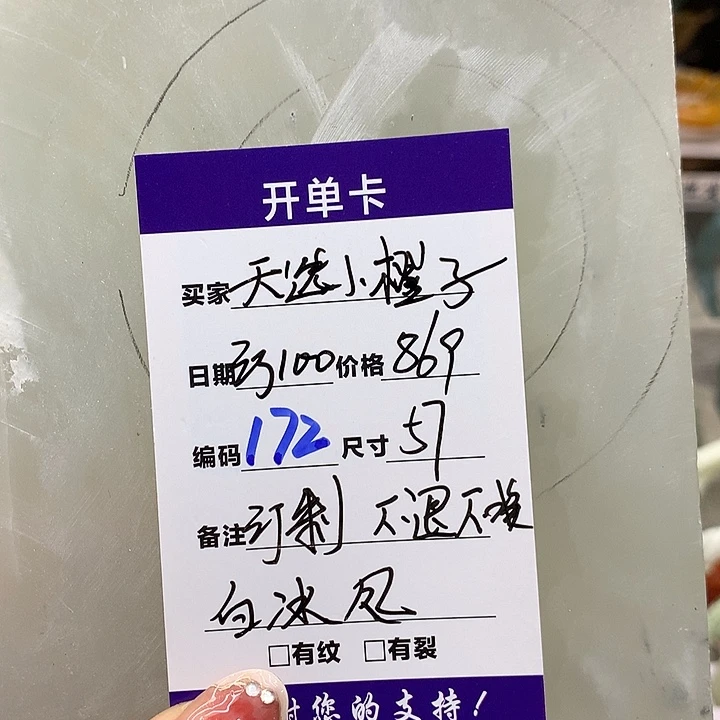 开单卡
买家 天选小橙子
日期 订100 价格 869
编码 172 尺寸 57
备注 订制 不退不换
白冰凤
□有纹 □有裂
对您的支持!